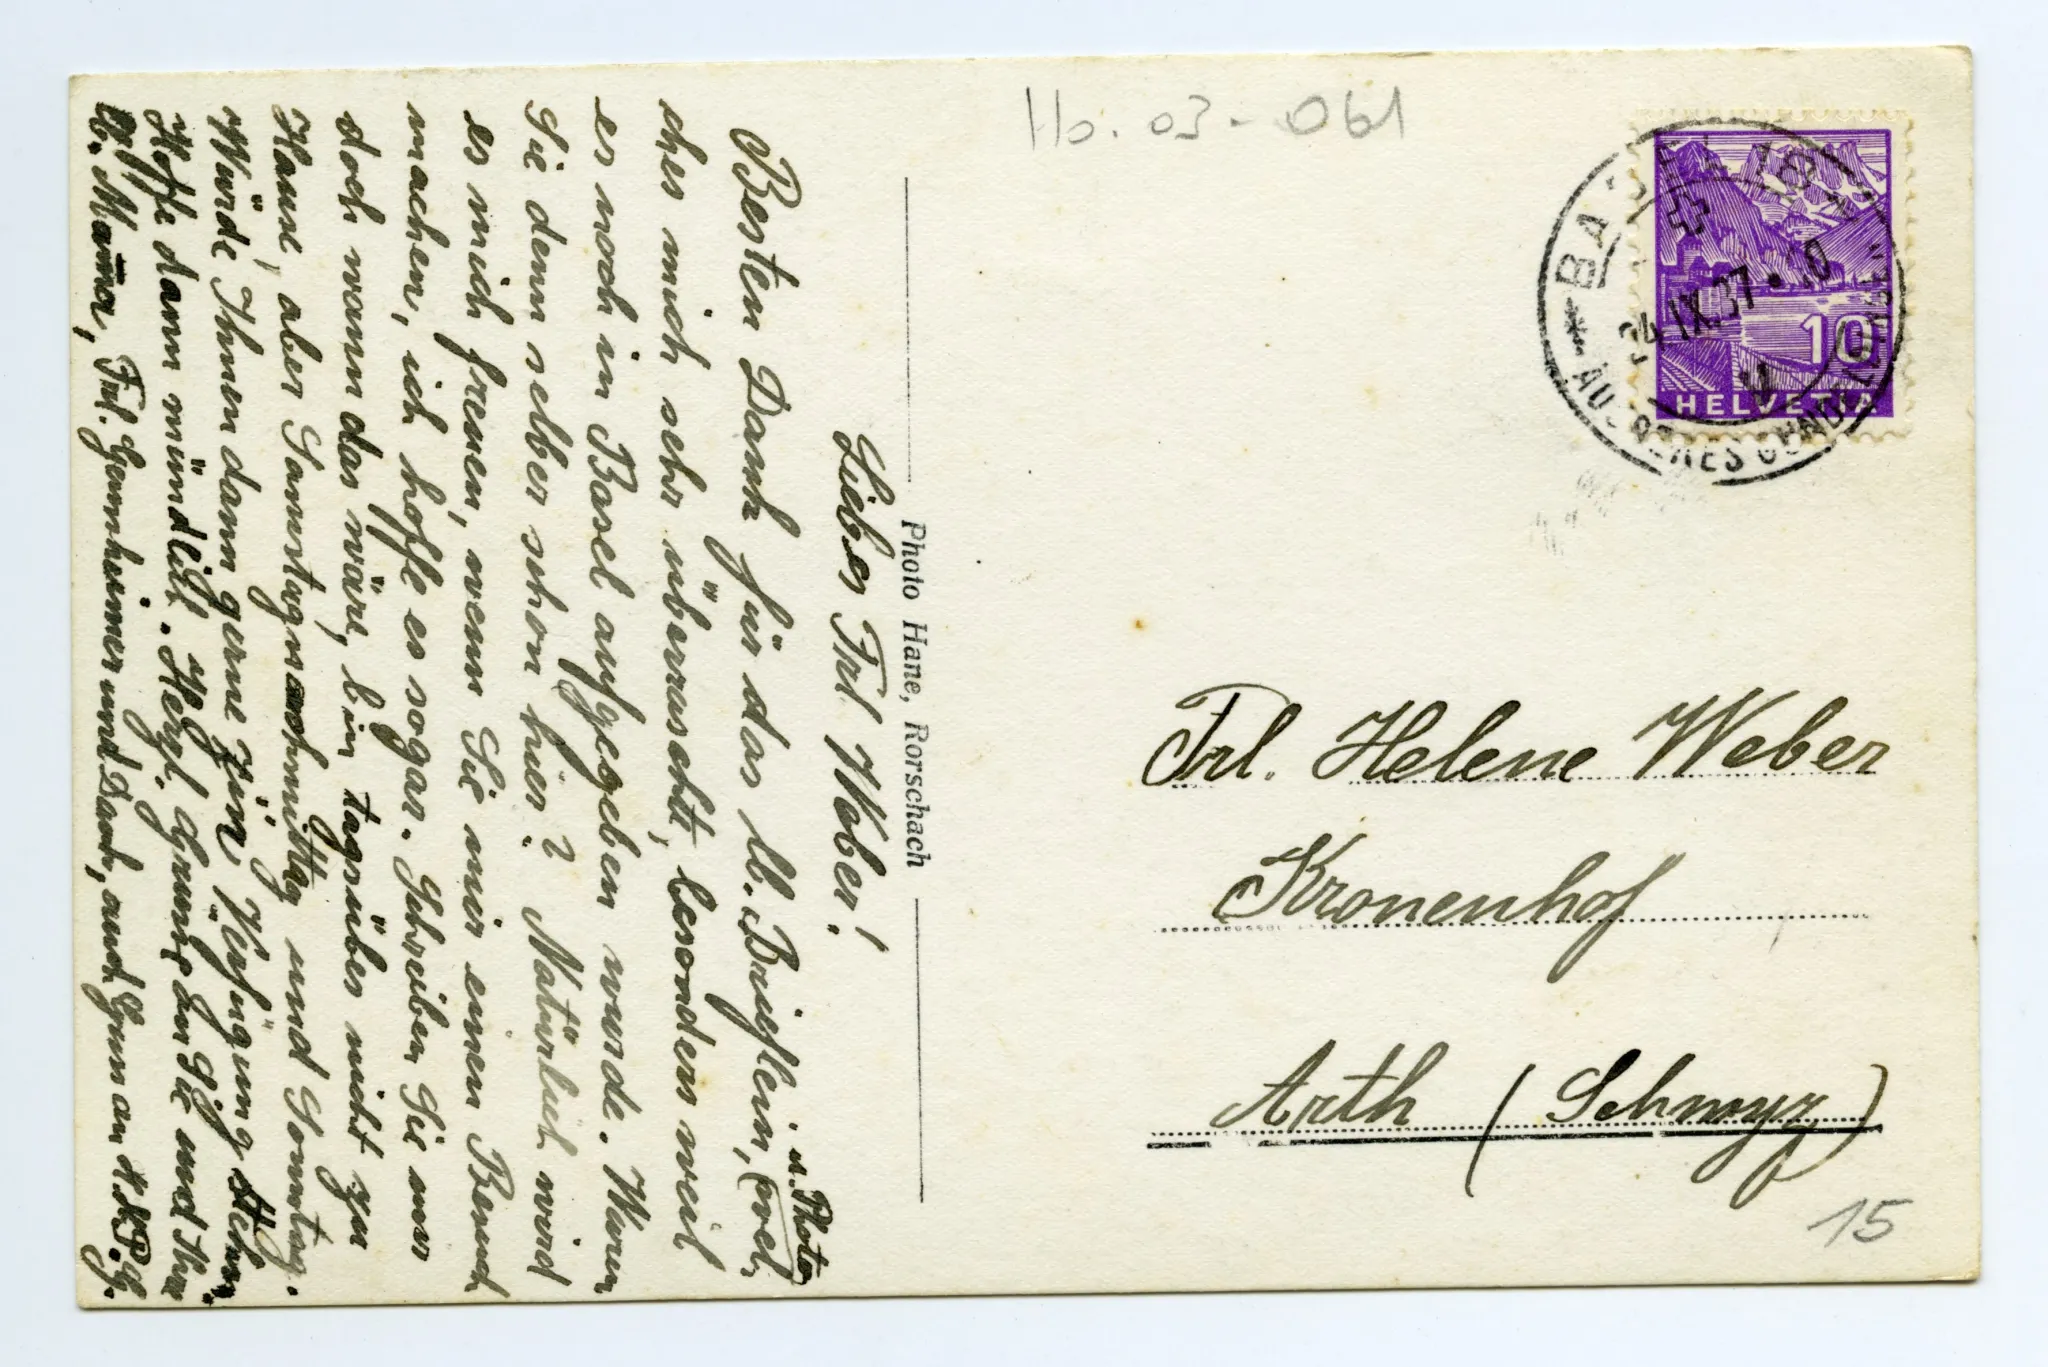 Hb. 03-061
BASEL 18
24.IX.37.20
AUSSERES GUNDELDINGEN
10
HELVETIA
Frl. Helene Weber
Kronenhof
Arth (Schwyz)
15
Photo Hane, Rorschach
Liebes Frl. Weber!
u. Photo
Besten Dank für das lb. Brieflein, wel-
ches mich sehr überrascht, besonders weil
es noch in Basel aufgegeben wurde. Waren
Sie denn selber schon hier? Natürlich wird
es mich freuen, wenn Sie mir einen Besuch
machen, ich hoffe es sogar. Schreiben Sie nur
doch wann das wäre, bin tagsüber nicht zu
Hause, aber Samstagnachmittag und Sonntag.
Würde Ihnen dann gerne zur Verfügung stehen.
Hoffe dann mündlich. Herzl. Grüsse an Sie und Ihre
lb. Mama, Frl. Gernheimer und Dank, auch Gruss an